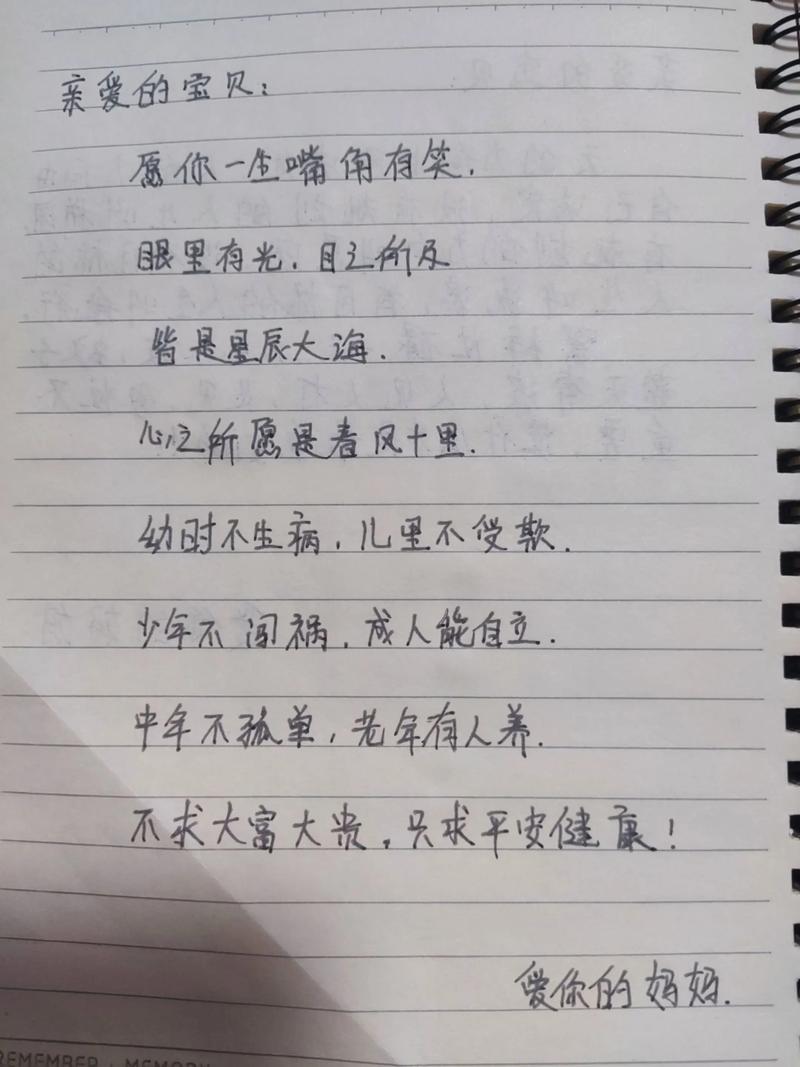 亲爱的宝贝：
愿你一生嘴角有笑.
眼里有光.目之所及
皆是星辰大海.
心之所愿是春风十里.
幼时不生病，儿里不受欺.
少年不闯祸，成人能自立.
中年不孤单，老年有人养.
不求大富大贵，只求平安健康！
爱你的妈妈.
REMEMBER · MEMORY